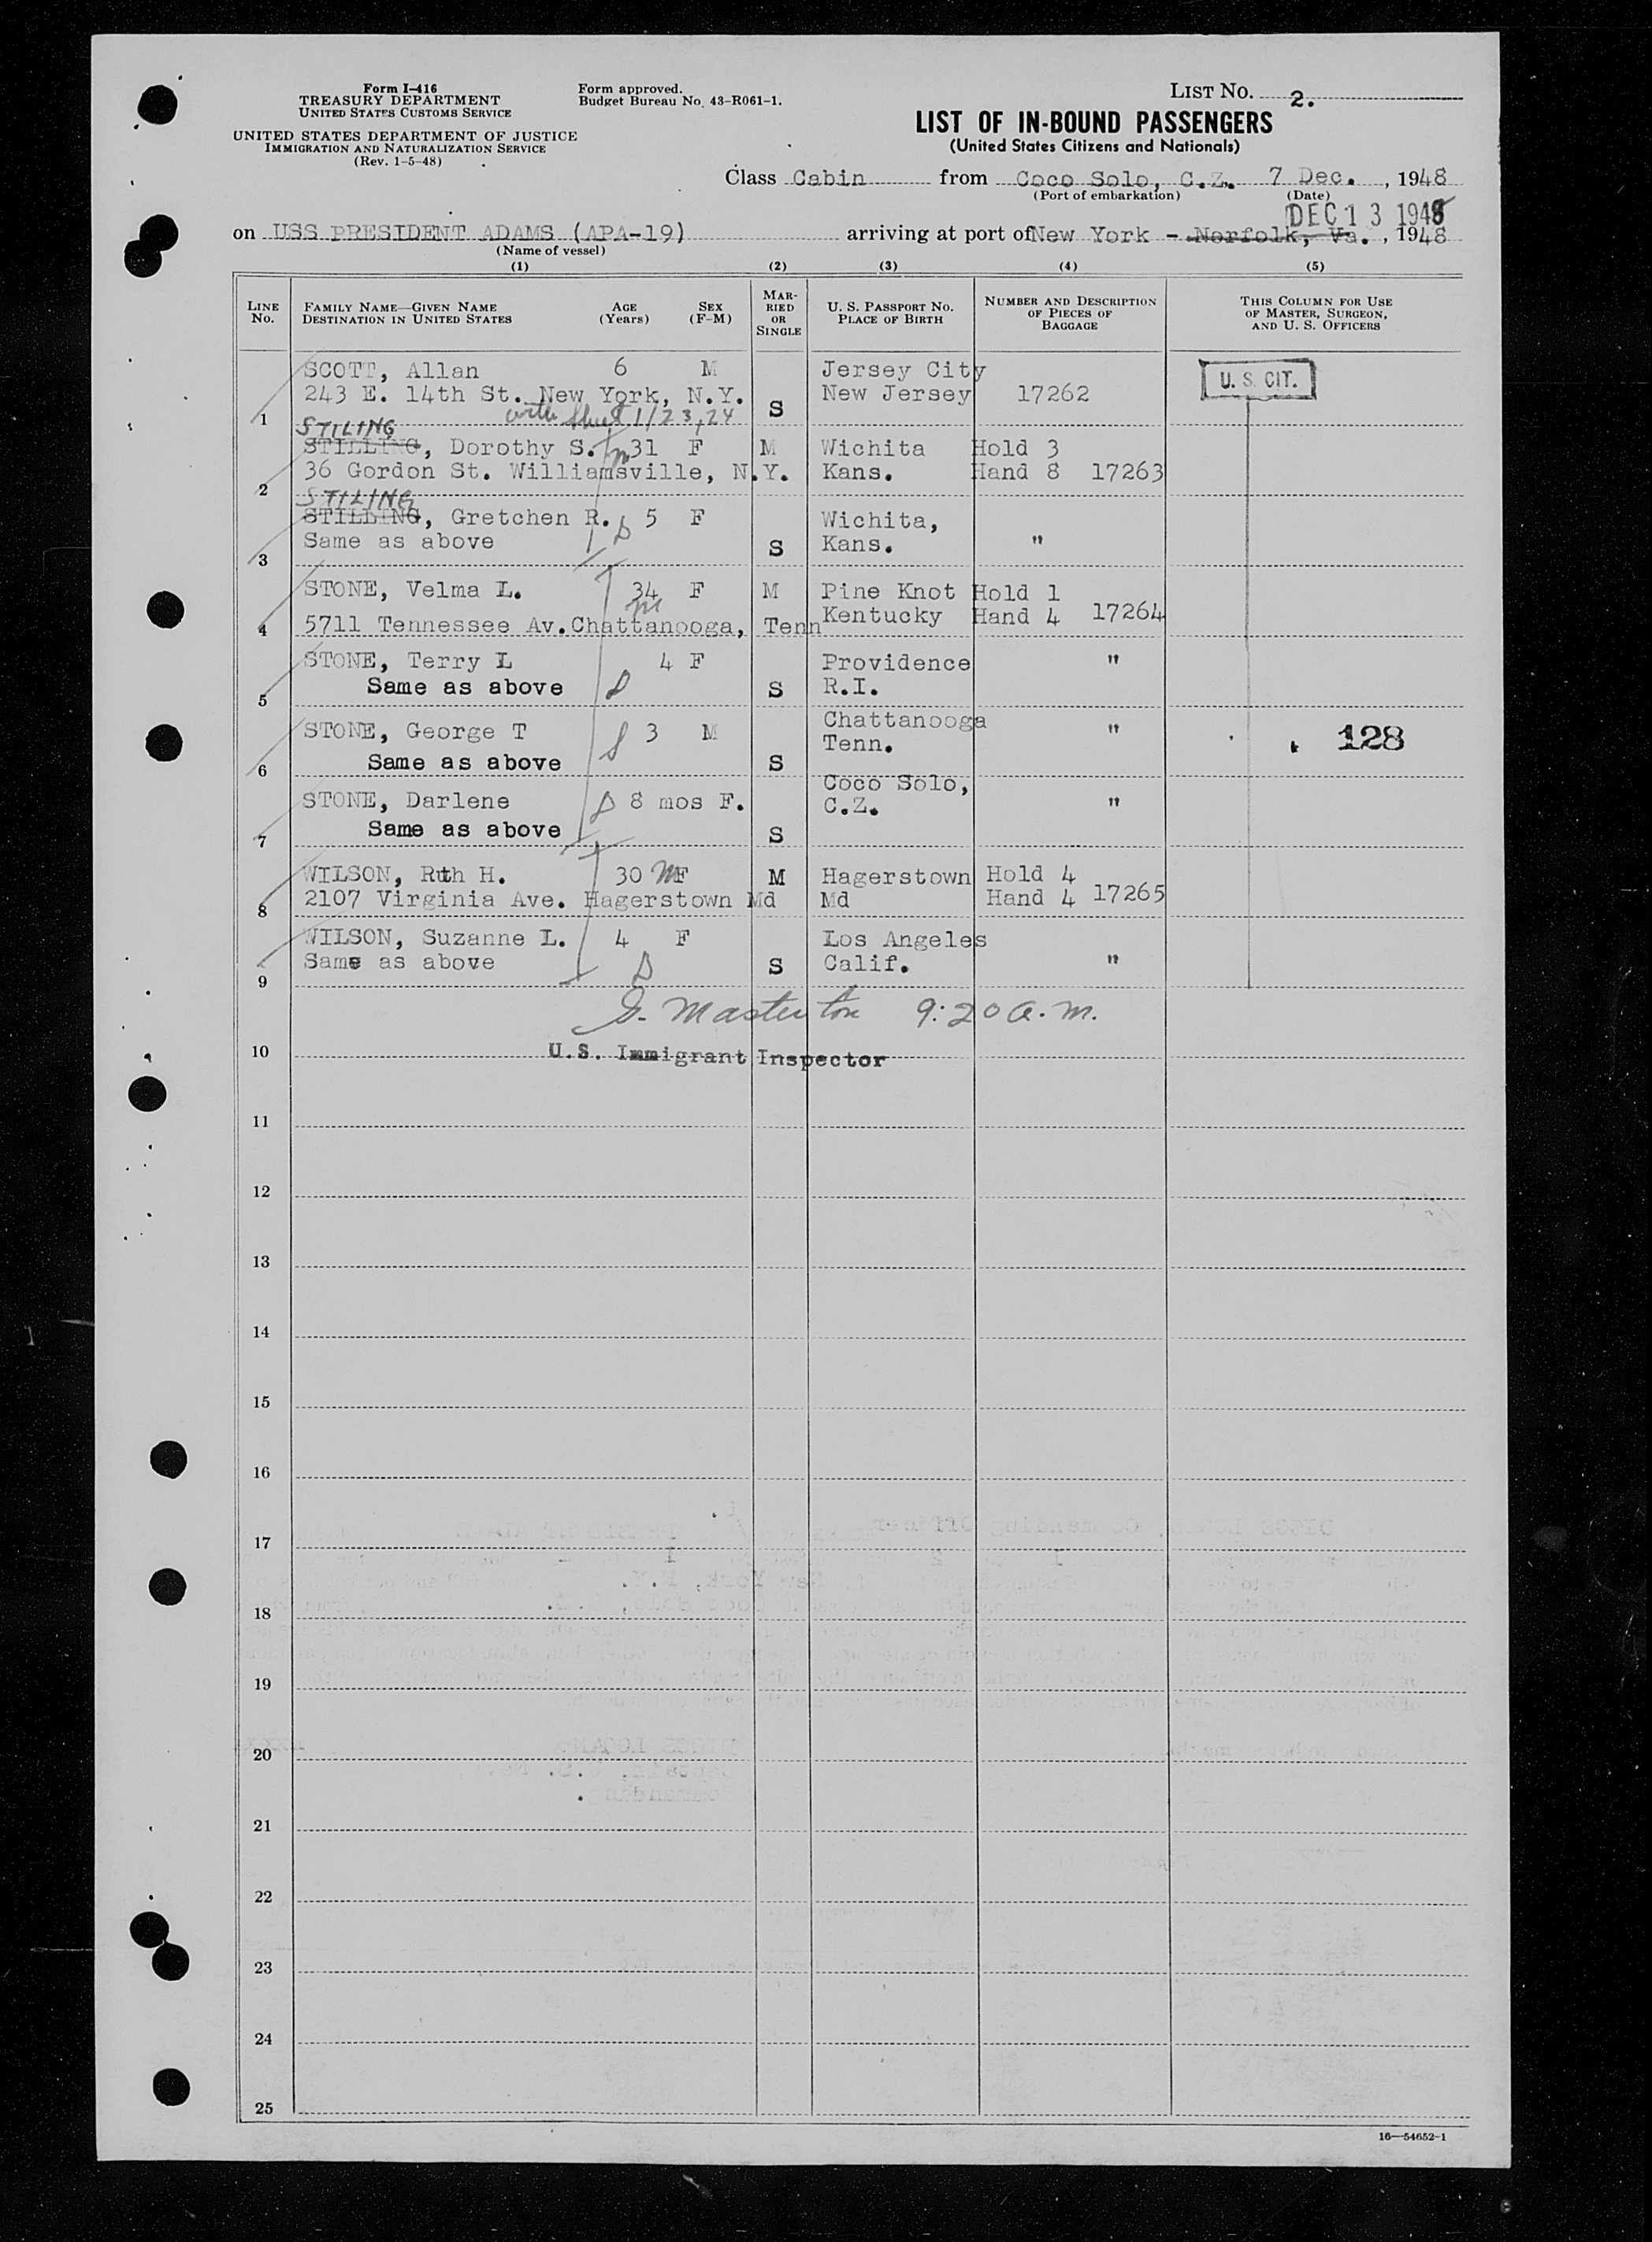 Form I-416
TREASURY DEPARTMENT
UNITED STATES CUSTOMS SERVICE
UNITED STATES DEPARTMENT OF JUSTICE
IMMIGRATION AND NATURALIZATION SERVICE
(Rev. 1-5-48)
Form approved.
Budget Bureau No. 43-R061-1.
LIST NO. 2.
LIST OF IN-BOUND PASSENGERS
(United States Citizens and Nationals)
Class Cabin from Coco Solo, C.Z. 7 Dec. , 1948
(Port of embarkation) (Date)
DEC 13 1948
on USS PRESIDENT ADAMS (APA-19) arriving at port of New York - Norfolk, Va. , 1948
(Name of vessel)
(1) (2) (3) (4) (5)
LINE No. FAMILY NAME—GIVEN NAME DESTINATION IN UNITED STATES AGE (Years) SEX (F-M) MARRIED OR SINGLE U. S. PASSPORT NO. PLACE OF BIRTH NUMBER AND DESCRIPTION OF PIECES OF BAGGAGE THIS COLUMN FOR USE OF MASTER, SURGEON, AND U. S. OFFICERS
SCOTT, Allan 6 M Jersey City U. S. CIT.
243 E. 14th St. New York, N.Y. New Jersey 17262
1 with sheet 1/23,24 S
STILING
STILLING, Dorothy S. m 31 F M Wichita Hold 3
36 Gordon St. Williamsville, N.Y. Kans. Hand 8 17263
2
STILING
STILLING, Gretchen R. 5 F Wichita,
Same as above S Kans. "
3
STONE, Velma L. 34 F M Pine Knot Hold 1
m
4 5711 Tennessee Av. Chattanooga, Tenn Kentucky Hand 4 17264
STONE, Terry L 4 F Providence "
5 Same as above S R.I.
STONE, George T 3 M Chattanooga Tenn. " 128
6 Same as above S
STONE, Darlene 8 mos F. Coco Solo, C.Z. "
7 Same as above S
WILSON, Ruth H. 30 m F M Hagerstown Hold 4
8 2107 Virginia Ave. Hagerstown Md Md Hand 4 17265
WILSON, Suzanne L. 4 F Los Angeles
Same as above S Calif. "
9
G. Masterton 9:20 a.m.
10 U.S. Immigrant Inspector
11
12
13
14
15
16
17
18
19
20
21
22
23
24
25
16—54652-1